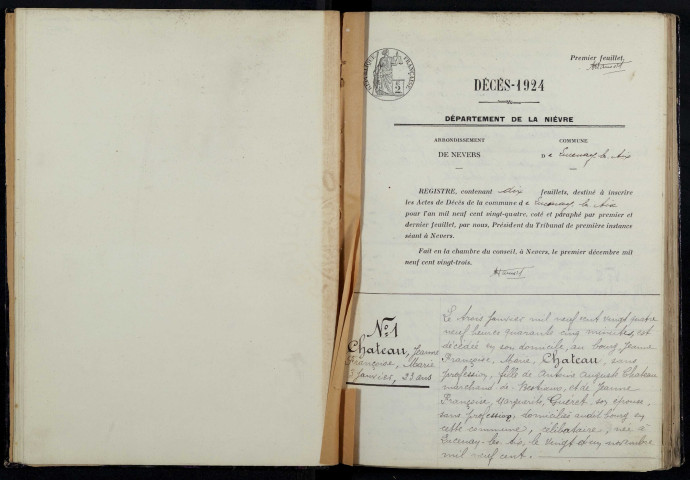 Premier feuillet.
RÉPUBLIQUE FRANÇAISE
2
DÉCÈS-1924
DÉPARTEMENT DE LA NIÈVRE
ARRONDISSEMENT
DE NEVERS
COMMUNE
De Lucenay les Aix
REGISTRE, contenant dix feuillets, destiné à inscrire
les Actes de Décès de la commune de Lucenay les Aix
pour l'an mil neuf cent vingt-quatre, coté et paraphé par premier et
dernier feuillet, par nous, Président du Tribunal de première instance
séant à Nevers.
Fait en la chambre du conseil, à Nevers, le premier décembre mil
neuf cent vingt-trois.
N° 1
Chateau, Jeanne
Françoise, Marie
3 Janvier, 23 ans
Le trois Janvier mil neuf cent vingt quatre
neuf heures quarante cinq minutes, est
décédée en son domicile, au bourg, Jeanne
Françoise, Marie, Chateau, sans
profession, fille de Antoine Auguste Chateau
marchand de bestiaux, et de Jeanne
Françoise, Marguerite, Guéret, son épouse,
sans profession, domiciliés audit bourg en
cette commune, célibataire, née à
Lucenay-les-Aix, le vingt et un novembre
mil neuf cent.